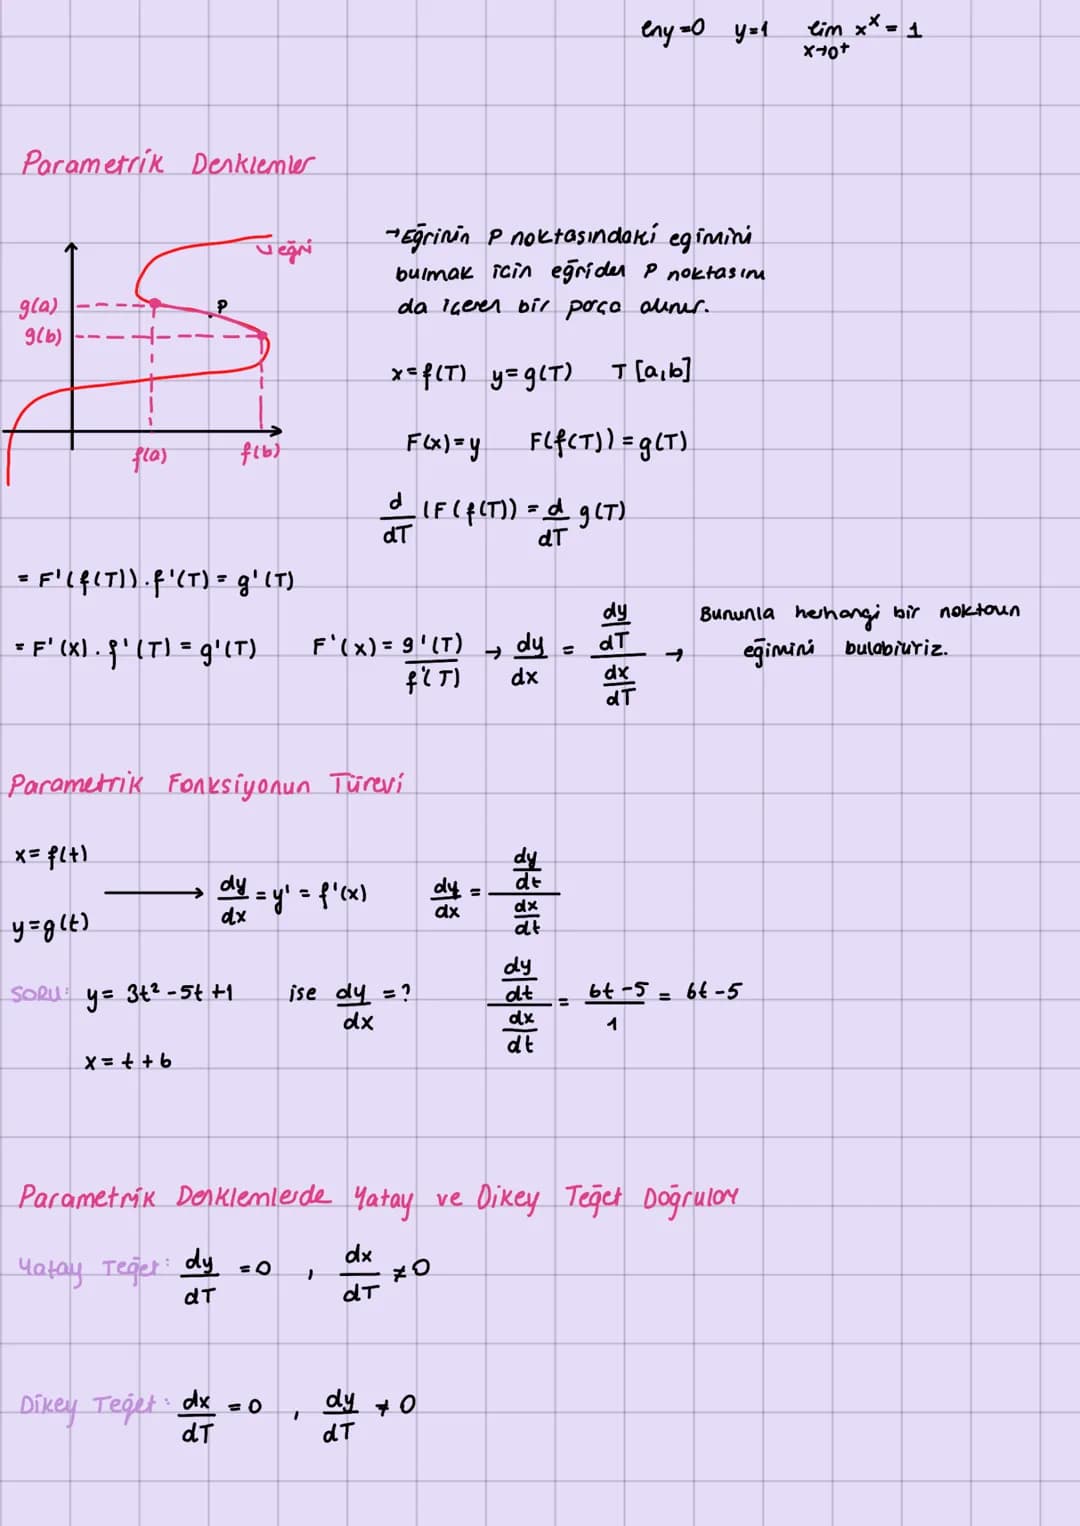 lny=0 y=1 lim x^x = 1
x→0+
Parametrik Denklemler
eğri
g(a)
P
g(b)
f(a) f(b)
→Eğrinin P noktasındaki egimini
bulmak icin eğriden P noktasını
da içeren bir parça alınır.
x=f(T) y=g(T) T [a,b]
F(x)=y F(f(T))=g(T)
d/dT (F(f(T)) = d/dT g(T)
= F'(f(T)).f'(T) = g'(T)
= F'(x).f'(T) = g'(T) F'(x) = g'(T)/f'(T) → dy/dx = (dy/dT)/(dx/dT) → Bununla herhangi bir noktanın
eğimini bulabiliriz.
Parametrik Fonksiyonun Türevi
x=f(t)
→ dy/dx = y' = f'(x) dy/dx = (dy/dt)/(dx/dt)
y=g(t)
SORU: y= 3t²-5t+1 ise dy/dx =? (dy/dt)/(dx/dt) = (6t-5)/1 = 6t-5
x=t+6
Parametrik Denklemlerde Yatay ve Dikey Teğet Doğrular
Yatay Teğet: dy/dT =0 , dx/dT ≠0
Dikey Teğet: dx/dT =0 , dy/dT ≠0